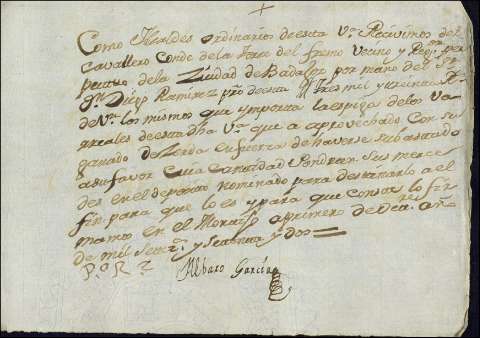 Como Alcaldes ordinarios de esta Vª Recivimos del
Cavallero Conde de la Torre del fresno Vecino y Regor per
petuo de la Ziudad de Badajoz por mano del Sr
Dn Diego Ramirez pro de esta Vª Tres mil y treinta Rs
de Vn los mismos que ymporta la espiga de los Va
de esta dha Vª que a aprovechado con su
ganado de Zerda en fuerza de haverse subastado
a su favor Cuia Cantidad Pondran sus merce
des en el deposito nominado para destinarlo a el
fin para que lo es y para que conste lo fir
mamos en el Morar a primero de año
de mil Setezs y Setenta y dos
Albaro Garcia